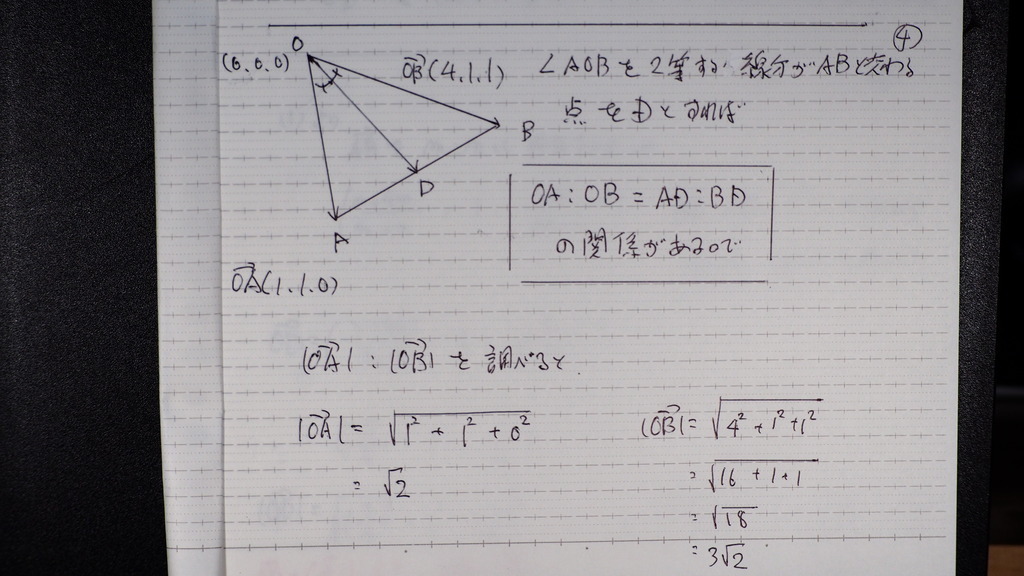 ④
O
(0.0.0)
OB→(4.1.1)
∠AOBを2等する線分がABと交わる
点をDとすれば
B
D
A
OA→(1.1.0)
OA:OB = AD:BD
の関係があるので
|OA→| : |OB→| を調べると.
|OA→| = √1² + 1² + 0²
= √2
|OB→| = √4² + 1² + 1²
= √16 + 1 + 1
= √18
= 3√2